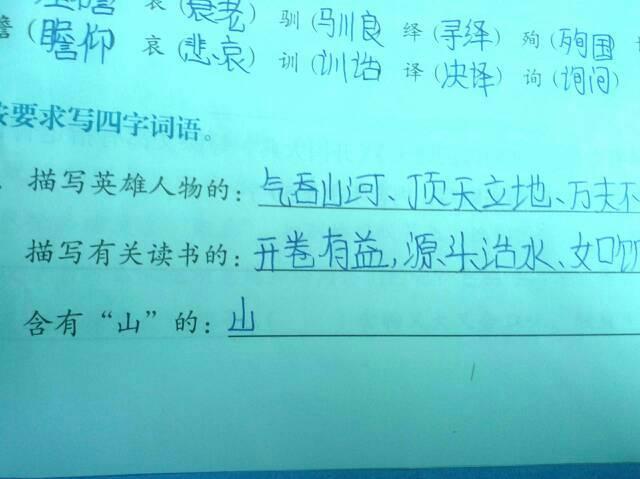 衰(衰老) 驯(马川良
瞻(瞻仰 哀(悲哀) 训(训诰 绎(寻绎) 殉(殉国
译(决译) 询(询问)
按要求写四字词语。
描写英雄人物的:气吞山河、顶天立地、万夫不
描写有关读书的:开卷有益,源头活水、如饥
含有“山”的:山